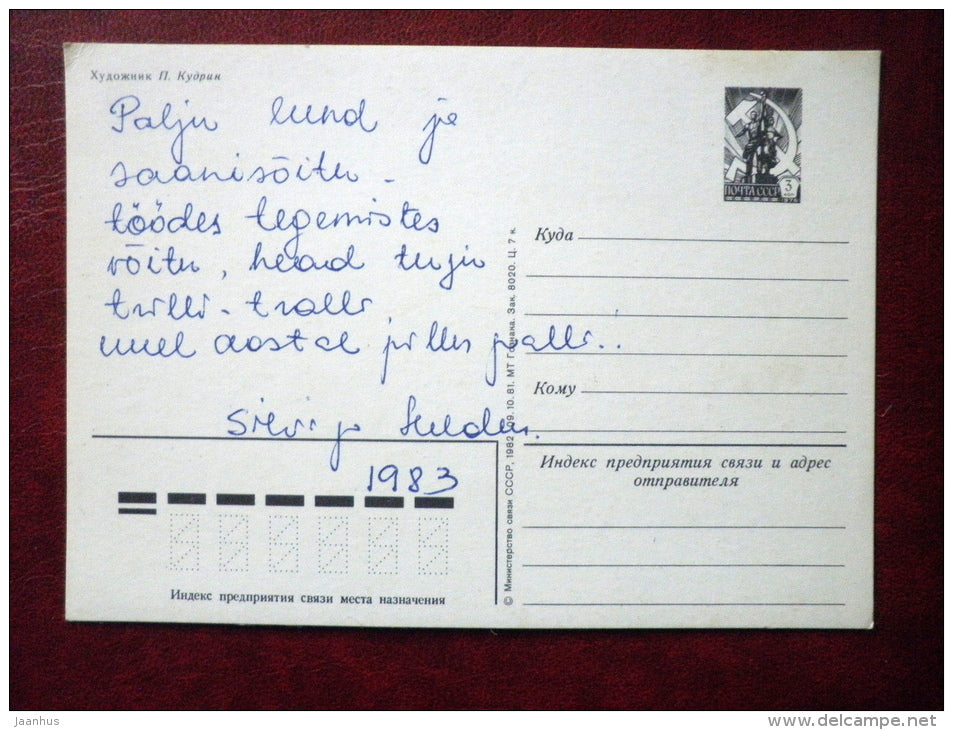 Художник П. Кудрин
Palju lund ja
saanisõitu -
töödes tegemistes
võitu, head tuju
trilli-tralli
uuel aastal pilles palli..
Silvi ja
1983
ПОЧТА СССР 3
1976
Куда
Кому
Индекс предприятия связи и адрес
отправителя
Индекс предприятия связи места назначения
© Министерство связи СССР, 1982. 09.10.81. МТ Гознака. Зак. 8020. Ц. 7 к.
jaanhus
www.delcampe.net